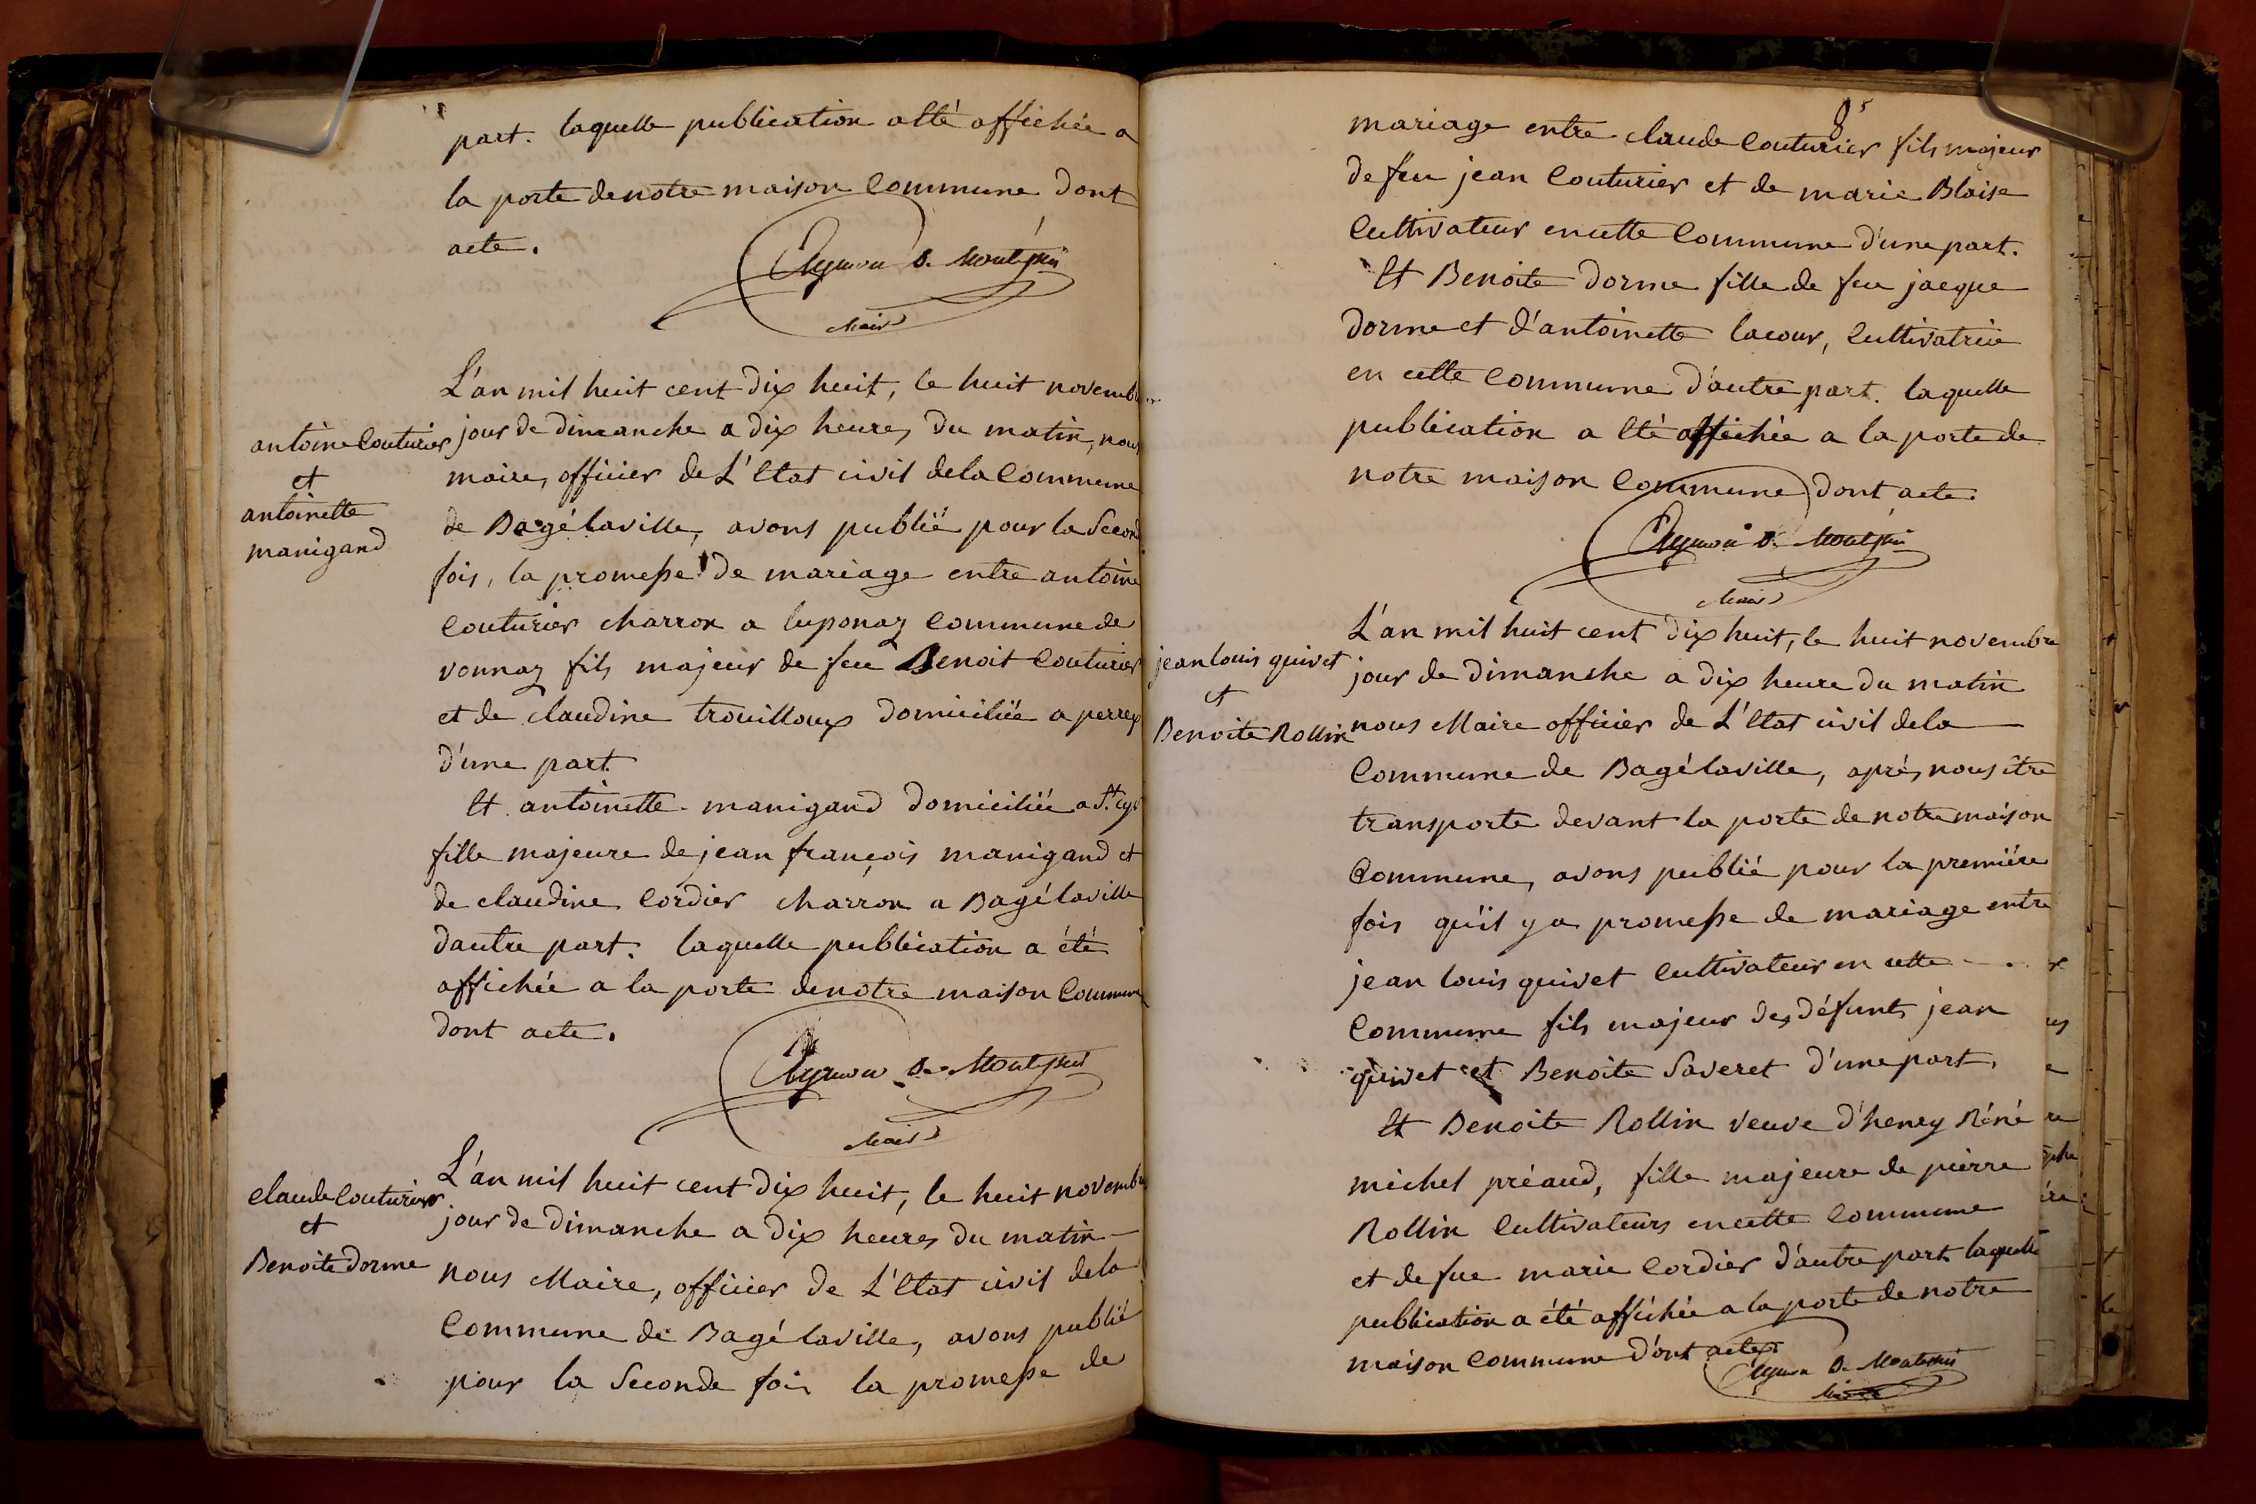 part. laquelle publication a été affichée a
la porte de notre maison Commune dont
acte.
Aymon De Montépin
Maire
antoine Couturier
et
antoinette
manigand
L'an mil huit cent dix huit, le huit novembre
jour de dimanche a dix heures du matin, nous
maire, officier de L'Etat civil de la Commune
de Bagé laville, avons publié pour la Second
fois, la promesse de mariage entre antoine
Couturier charron a luponaz Commune de
vonnaz fils majeur de feu Benoit Couturier
et de claudine trouilloux domiciliée a perrex
d'une part
Et antoinette manigand domiciliée a St. cyr
fille majeure de jean françois manigand et
de claudine Cordier charron a Bagé laville
dautre part. laquelle publication a été
affichée a la porte de notre maison Commune
dont acte.
Aymon De Montépin
Maire
claude Couturier
et
Benoite dorme
L'an mil huit cent dix huit, le huit novembre
jour de dimanche a dix heures du matin
nous Maire, officier de L'Etat civil dela
Commune de Bagé laville, avons publié
pour la Seconde fois la promesse de
85
mariage entre claude Couturier fils majeur
de feu jean Couturier et de marie Blaise
Cultivateur en cette Commune d'une part.
Et Benoite dorme fille de feu jacque
dorme et d'antoinette lacour, Cultivatrice
en cette Commune d'autre part. laquelle
publication a été affichée a la porte de
notre maison Commune dont acte.
Aymon De Montépin
Maire
jean louis quivet
et
Benoite Rollin
L'an mil huit cent dix huit, le huit novembre
jour de dimanche a dix heure du matin
nous Maire officier de L'Etat civil dela
Commune de Bagé laville, après nous être
transporte devant la porte de notre maison
Commune, avons publié pour la première
fois qu'il y a promesse de mariage entre
jean louis quivet Cultivateur en cette
Commune fils majeur des défunts jean
quivet et Benoite Saveret d'une part,
Et Benoite Rollin veuve d'henry Réné
michel préaud, fille majeure de pierre
Rollin Cultivateurs en cette Commune
et de fue marie Cordier d'autre part laquelle
publication a été affichée a la porte de notre
maison Commune dont acte.
Aymon De Montépin
Maire